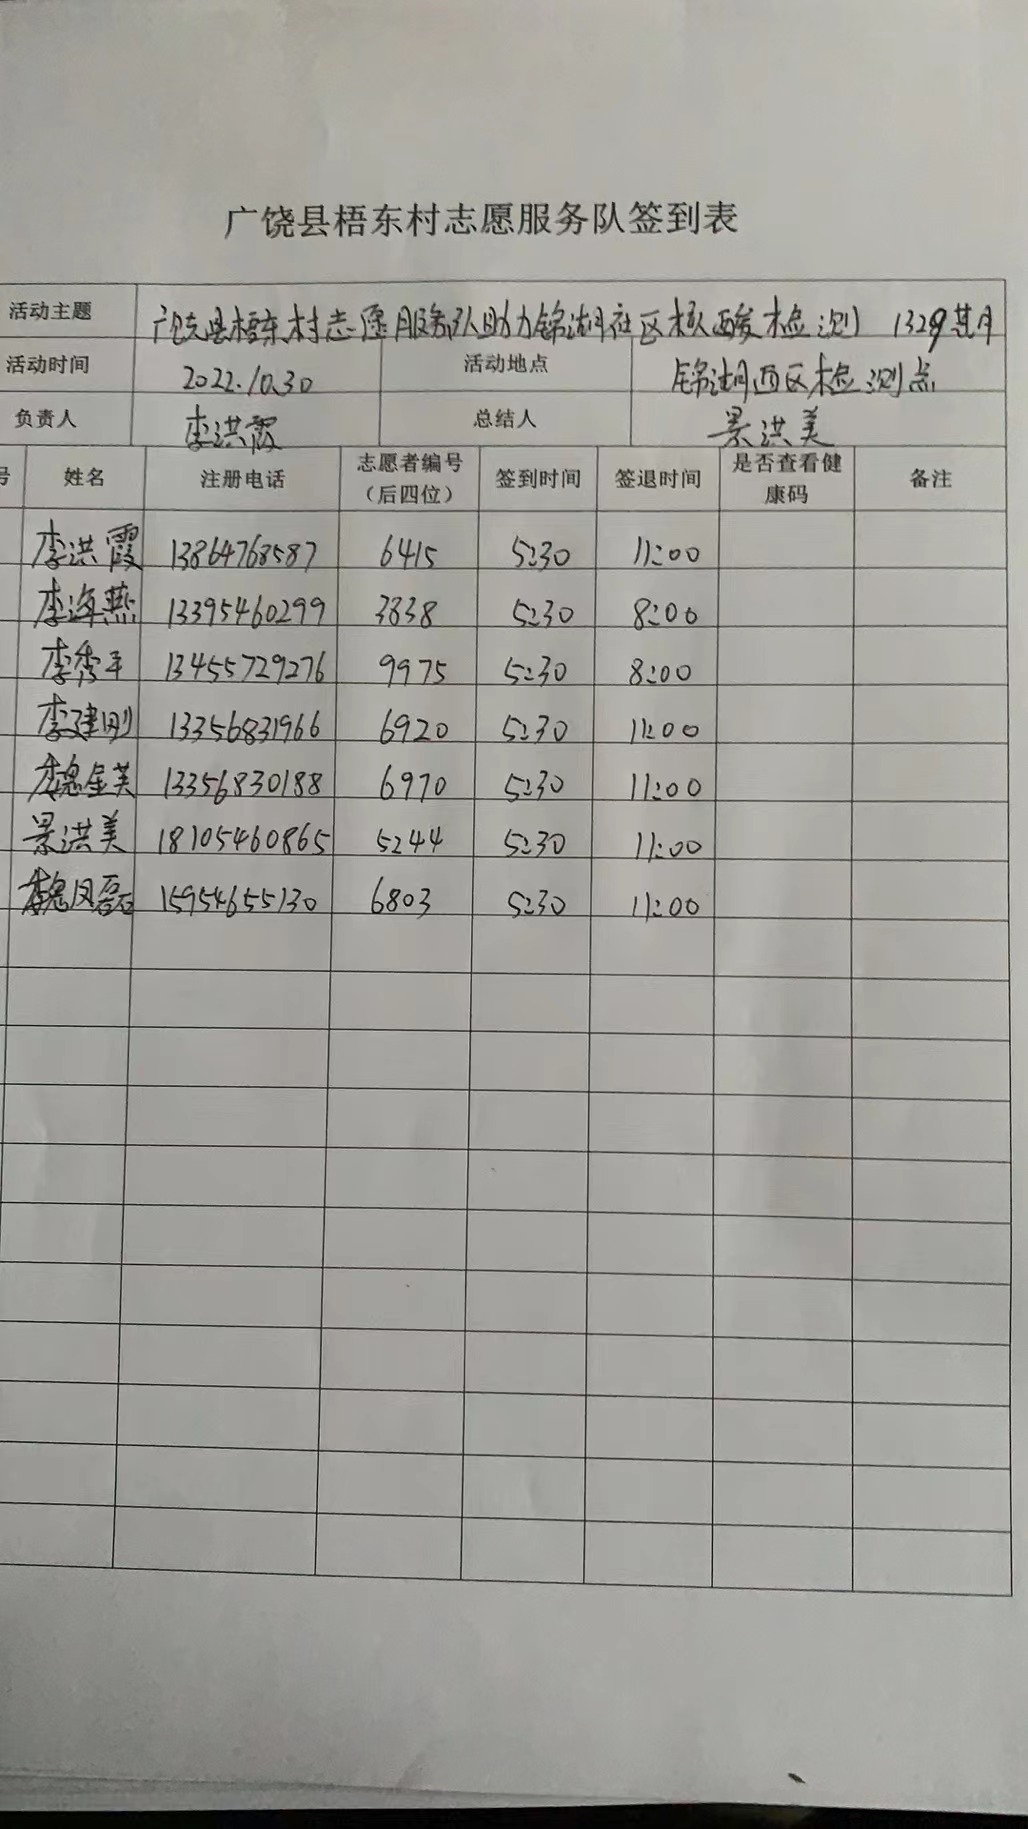 广饶县梧东村志愿服务队签到表
活动主题 广饶县梧东村志愿服务队助力锦湖社区核酸检测 1329期
活动时间 2022.10.30 活动地点 锦湖西区检测点
负责人 李洪霞 总结人 景洪美
号 姓名 注册电话 志愿者编号（后四位） 签到时间 签退时间 是否查看健康码 备注
李洪霞 13864768587 6415 5:30 11:00
李海燕 13395460299 3838 5:30 8:00
李秀平 13455729276 9975 5:30 8:00
李建刚 13356831966 6920 5:30 11:00
魏金芙 13356830188 6970 5:30 11:00
景洪美 18105460865 5244 5:30 11:00
魏凤磊 15954655130 6803 5:30 11:00